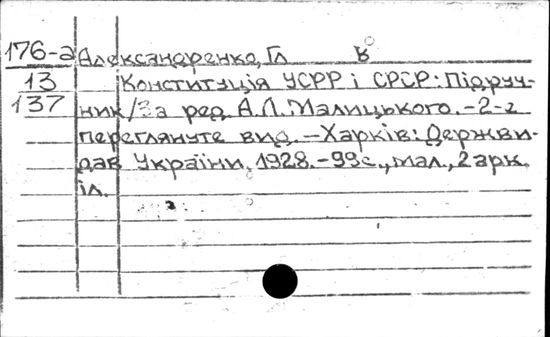 176-а Александренко, Гл
13 Конституція УСРР і СРСР: Підруч-
137 ник/За ред. А.Л. Малицького. -2-г
переглянуте вид. -Харків: Держви-
дав України, 1928. -99с., мал., 2 арк.
іл.